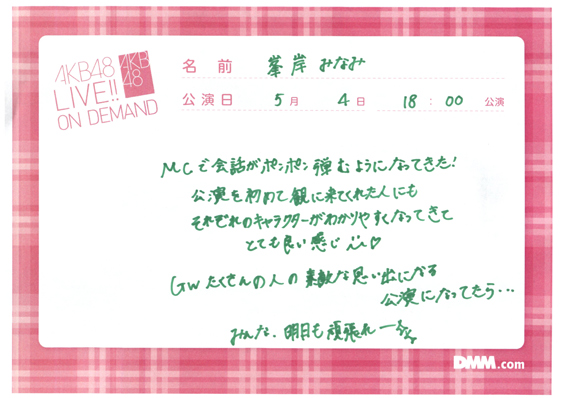 AKB48
LIVE!!
ON DEMAND
AKB
48
名前 峯岸みなみ
公演日 5月 4日 18:00 公演
MCで会話がポンポン弾むようになってきた!
公演を初めて観に来てくれた人にも
それぞれのキャラクターがわかりやすくなってきて
とても良い感じ
GWたくさんの人の素敵な思い出になる
公演になってたら…
みんな、明日も頑張れー
DMM.com